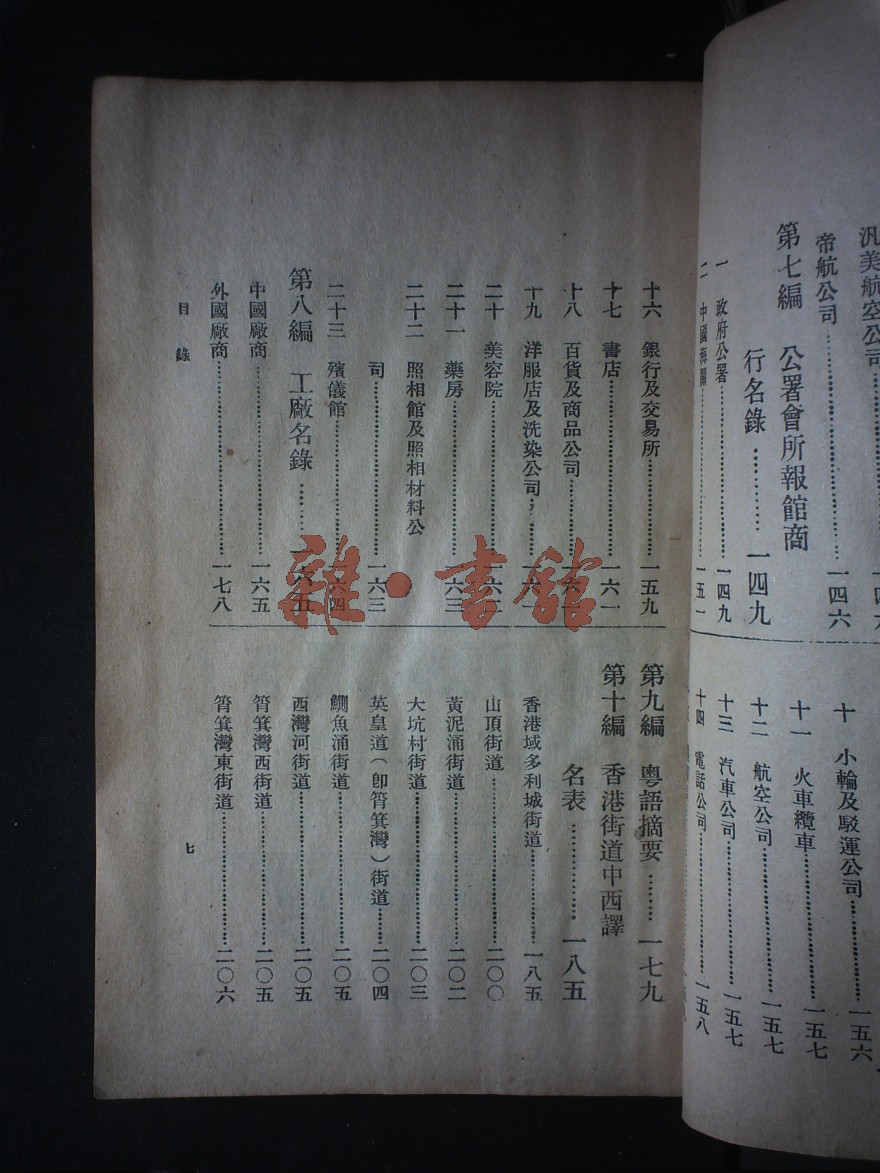 汎美航空公司
帝航公司…………一四六
第七編　公署會所報館商
行名錄…………一四九
一　政府公署…………一四九
二　中國…………一五一
十　小輪及駁運公司…………一五六
十一　火車纜車…………一五七
十二　航空公司…………一五七
十三　汽車公司…………一五七
十四　電話公司…………一五八
十六　銀行及交易所…………一五九
十七　書店…………一六一
十八　百貨及商品公司…………一六
十九　洋服店及洗染公司…………一六
二十　美容院…………一六
二十一　藥房…………一六三
二十二　照相館及照相材料公
司…………一六三
二十三　殯儀館…………一六四
第八編　工廠名錄…………一六五
中國廠商…………一六五
外國廠商…………一七八
第九編　粵語摘要…………一七九
第十編　香港街道中西譯
名表…………一八五
香港域多利城街道…………一八五
山頂街道…………二〇〇
黃泥涌街道…………二〇二
大坑村街道…………二〇三
英皇道（卽筲箕灣）街道…………二〇四
鰂魚涌街道…………二〇五
西灣河街道…………二〇五
筲箕灣西街道…………二〇五
筲箕灣東街道…………二〇六
目錄
七
雜·書館